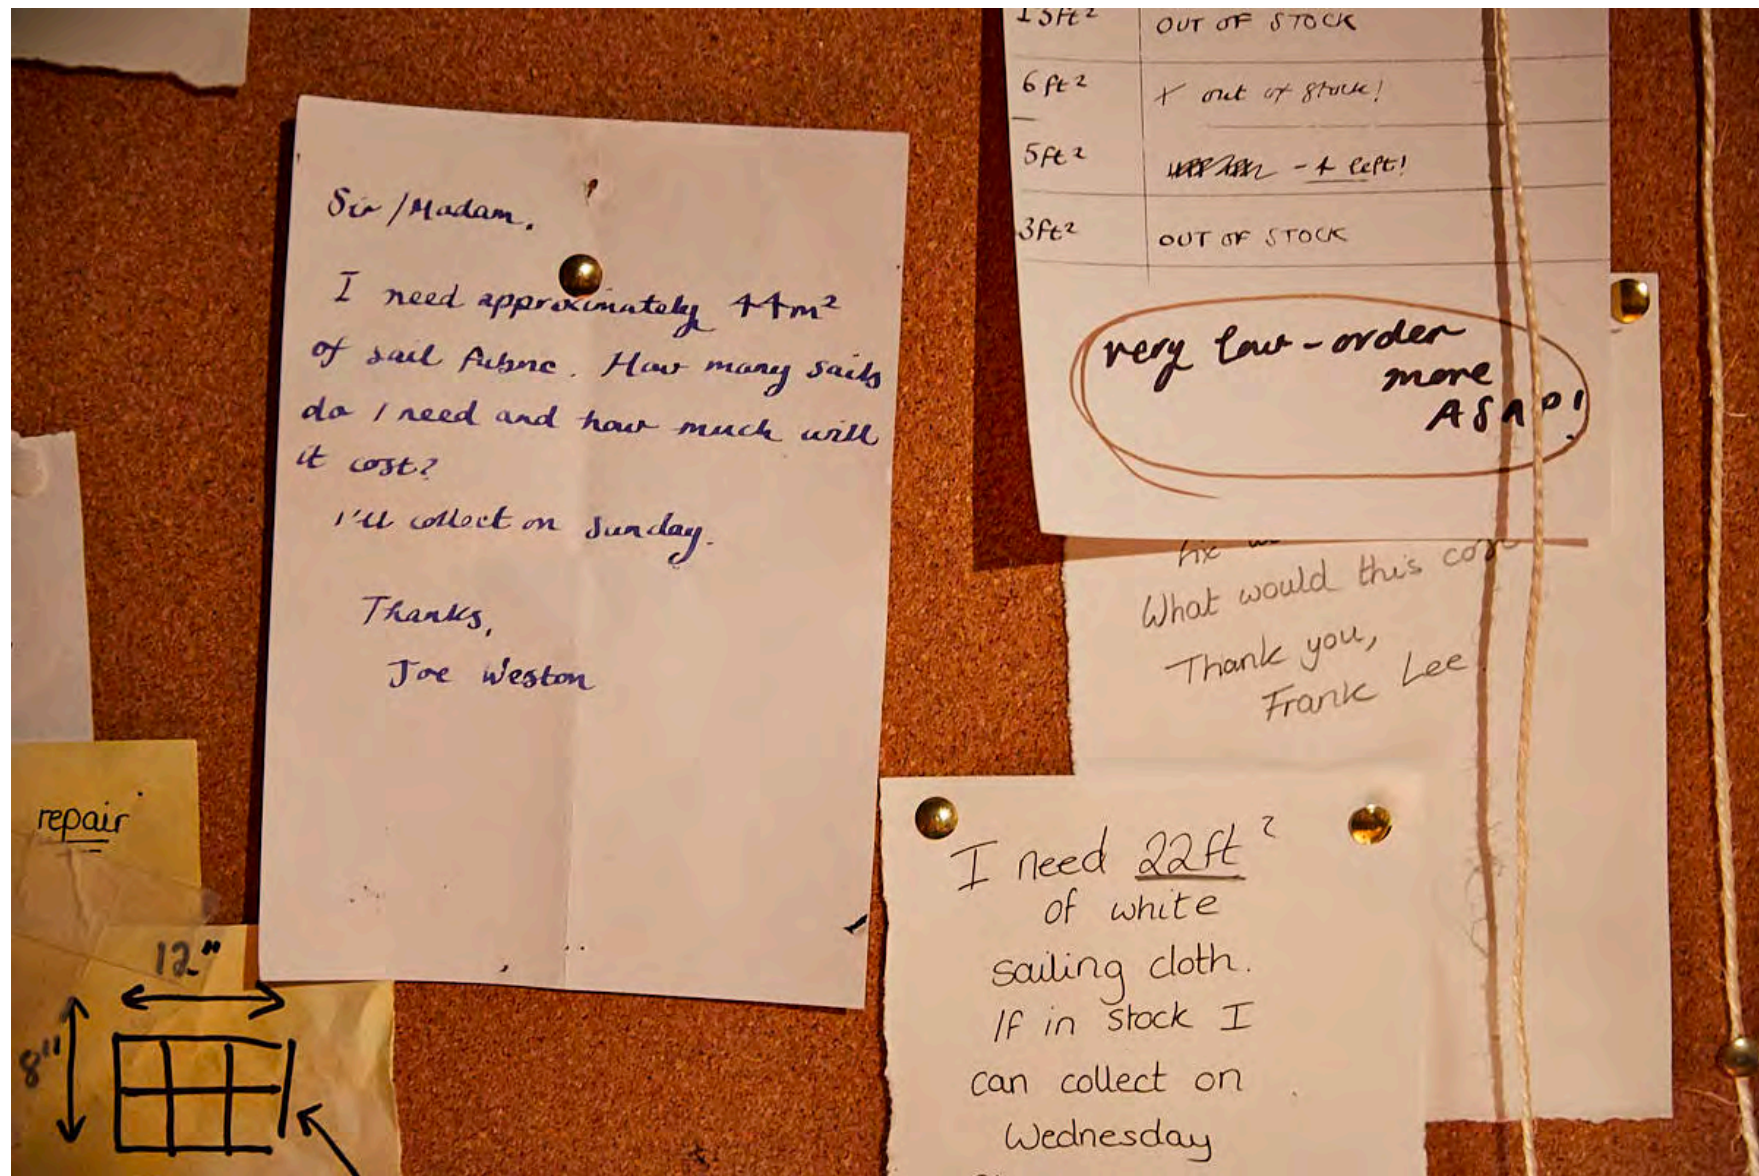 Sir/Madam,
I need approximately 44m²
of sail fabric. How many sails
do I need and how much will
it cost?
I'll collect on Sunday.
Thanks,
Joe Weston
15ft² OUT OF STOCK
6ft² X out of stock!
5ft² - 4 left!
3ft² OUT OF STOCK
very low - order
more
ASAP!
What would this
Thank you,
Frank Lee
I need 22ft²
of white
sailing cloth.
If in stock I
can collect on
Wednesday
repair
12"
8"